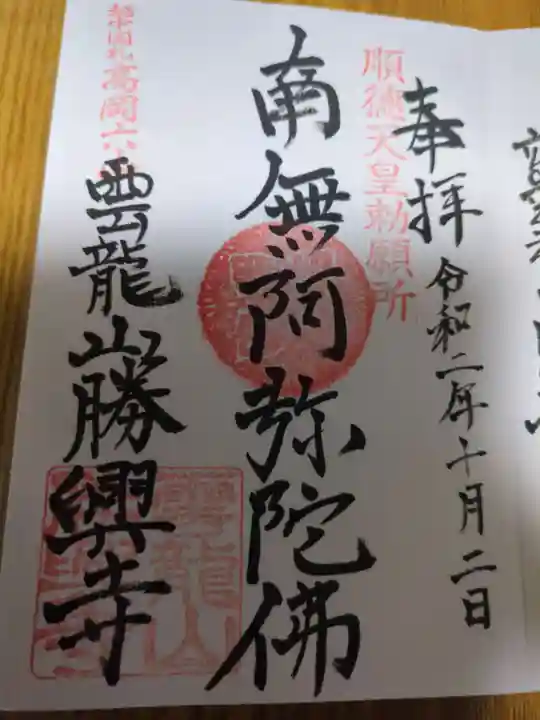 奉拝
令和二年十月二日
順徳天皇勅願所
南無阿弥陀佛
高岡
雲龍山勝興寺
雲龍山